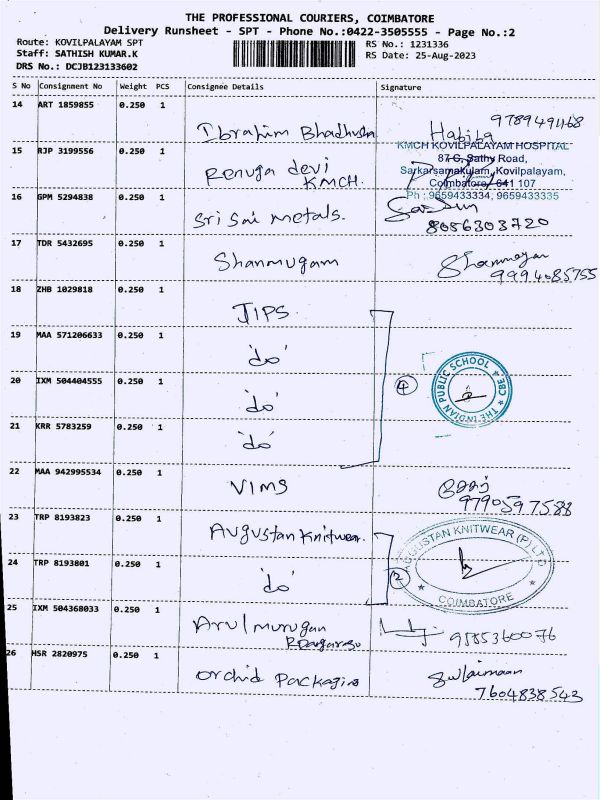 THE PROFESSIONAL COURIERS, COIMBATORE
Delivery Runsheet - SPT - Phone No.:0422-3505555 - Page No.:2
Route: KOVILPALAYAM SPT
Staff: SATHISH KUMAR.K
DRS No.: DCJB123133602
RS No.: 1231336
RS Date: 25-Aug-2023
S No Consignment No Weight PCS Consignee Details Signature
14 ART 1859855 0.250 1
Ibrahim Bhadhusha Habiba
15 RJP 3199556 0.250 1
Renuga devi
KMCH.
KMCH KOVILPALAYAM HOSPITAL
87-C, Sathy Road,
Sarkarsamakulam, Kovilpalayam,
Coimbatore, 641 107
Ph : 9659433334, 9659433335
16 GPM 5294838 0.250 1
Sri Sai Metals.
8056303720
17 TDR 5432695 0.250 1
Shanmugam
9994085755
18 ZHB 1029818 0.250 1
TIPS.
19 MAA 571206633 0.250 1
'do'
20 IXM 504404555 0.250 1
'do'
4
THE INDIAN PUBLIC SCHOOL CBE
21 KRR 5783259 0.250 1
'do'
22 MAA 942995534 0.250 1
VIMS
9790597588
23 TRP 8193823 0.250 1
Augustan Knitwear.
24 TRP 8193801 0.250 1
'do'
2
AUGUSTAN KNITWEAR (P) LTD
COIMBATORE
25 IXM 504368033 0.250 1
Arulmurugan
9585360076
26 HSR 2820975 0.250 1
Orchid Packaging Sulaimaan
7604838543